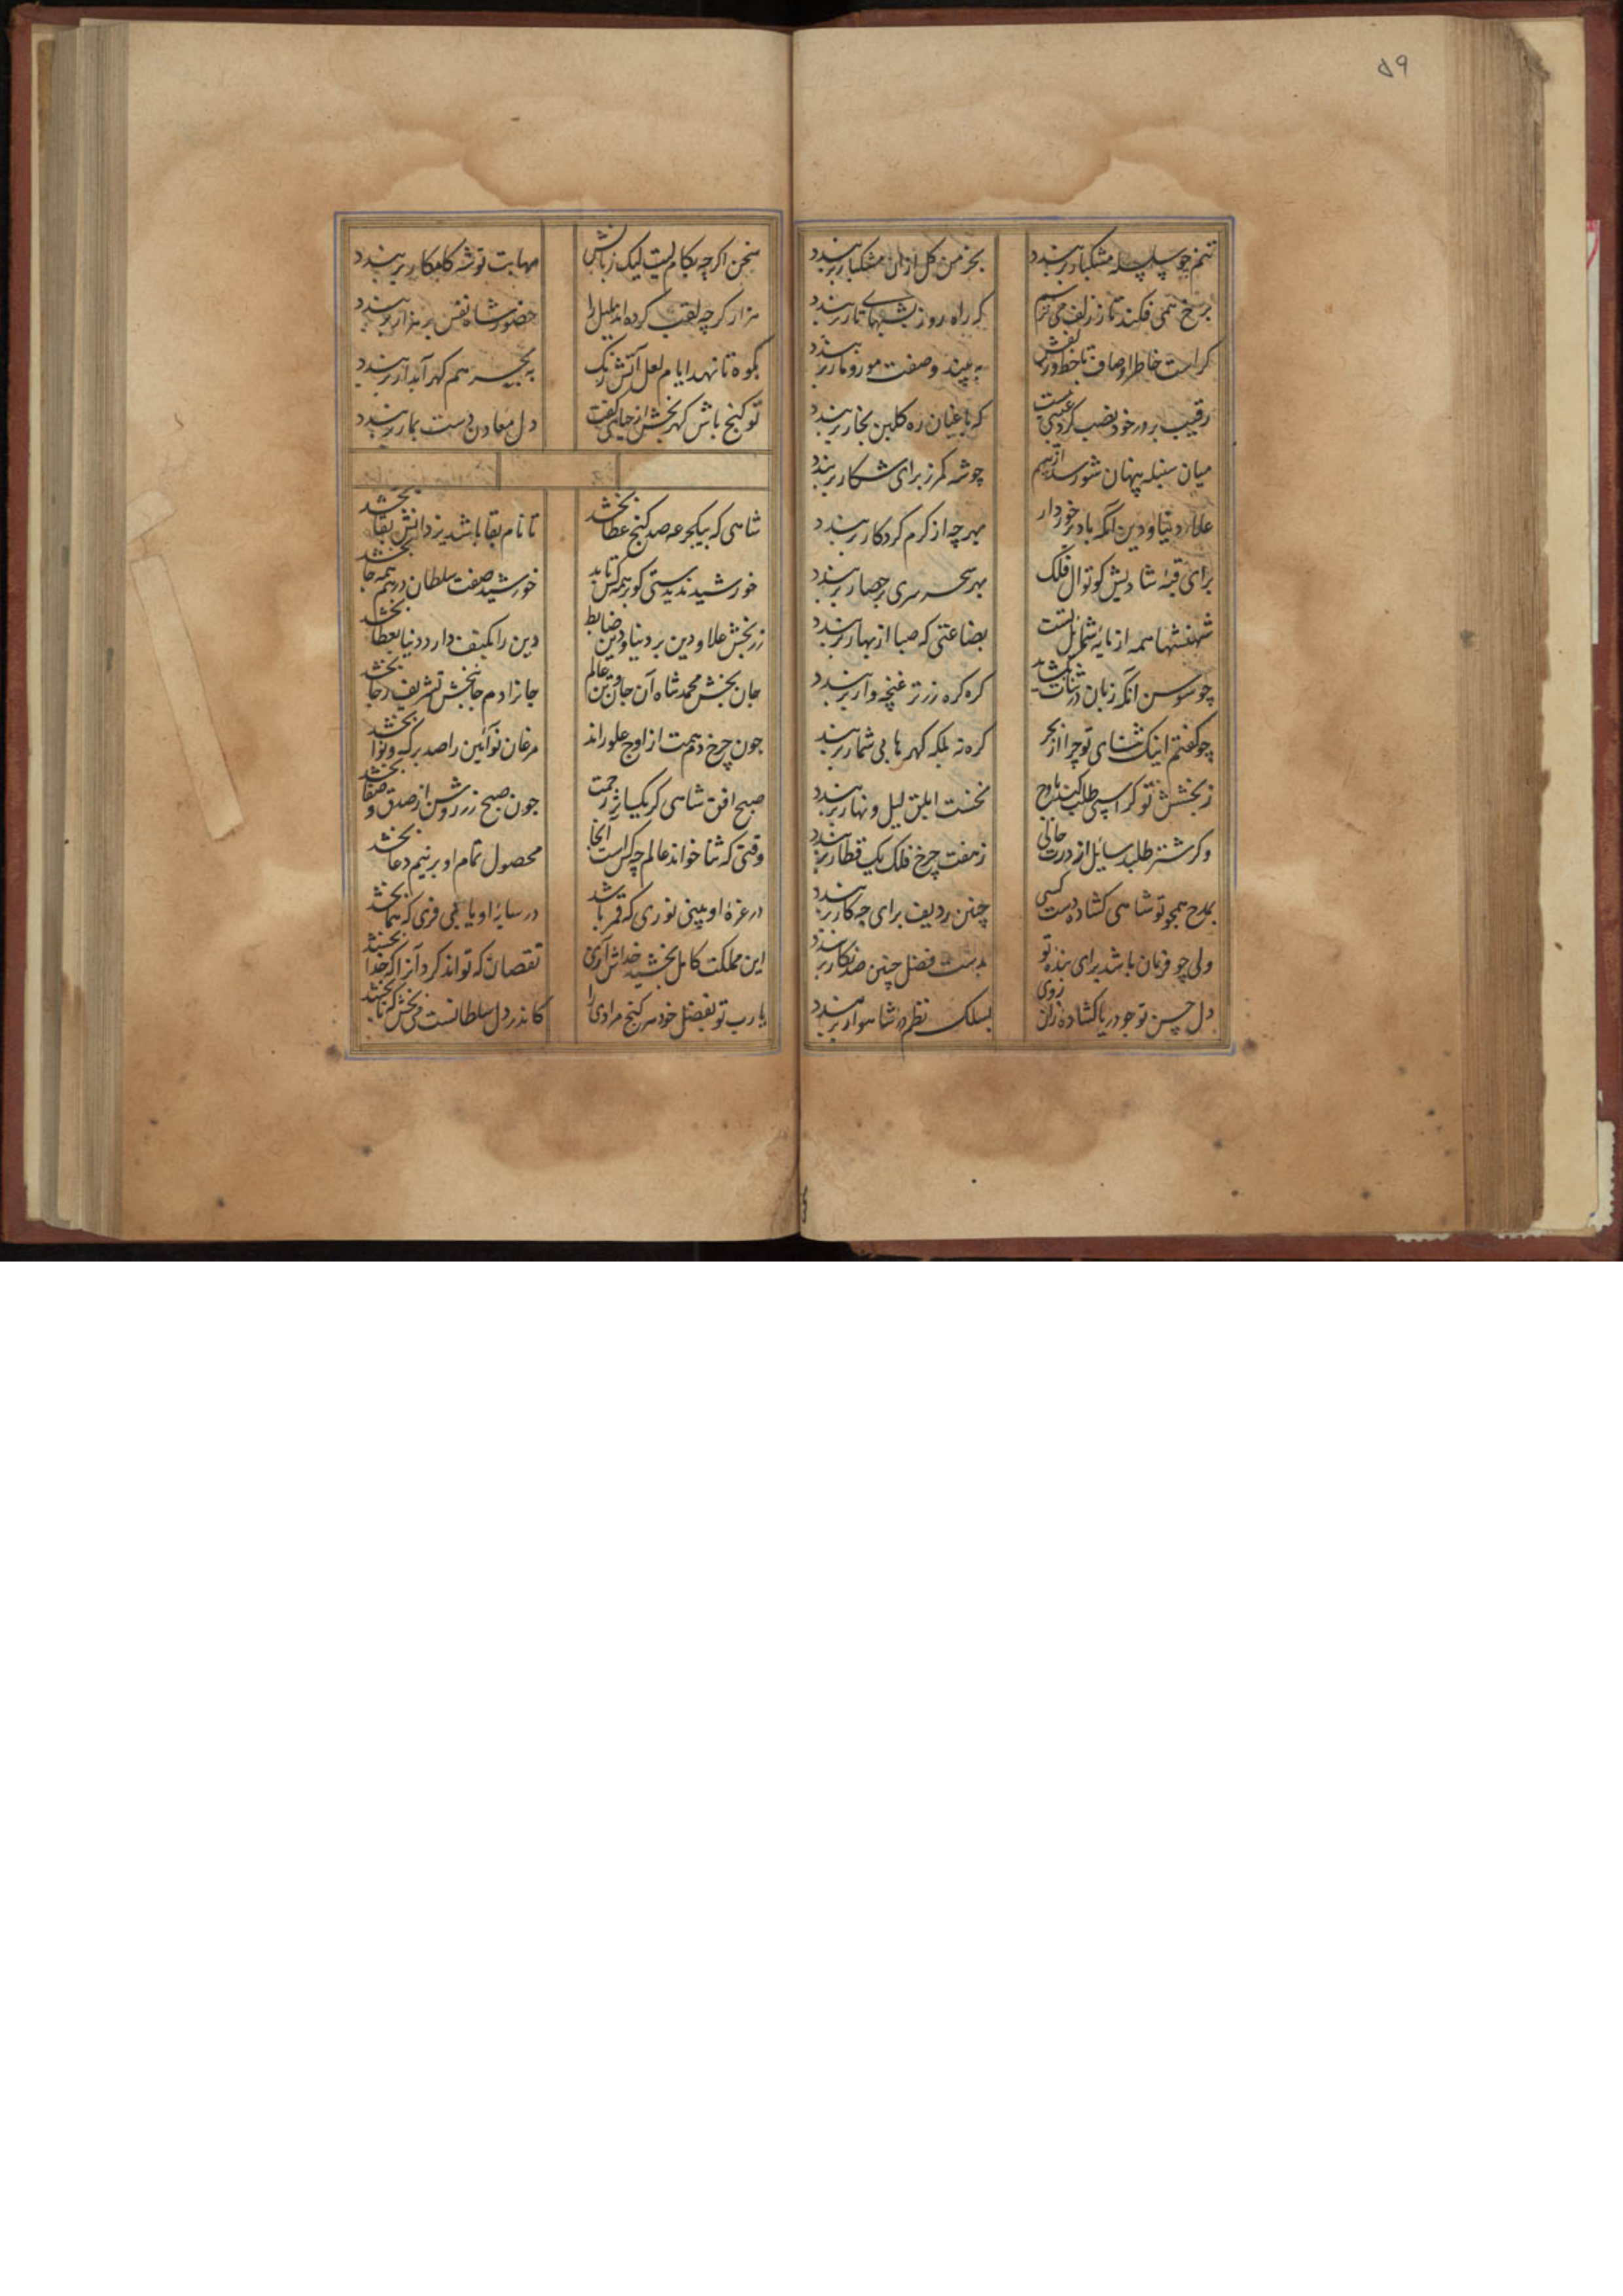 ۵۹
تنم چو سلسله مشکبار بربندد بخرمن گل ازان مشکبار بربندد
برخ همی فکند تار زلف می ترسم که راه روز بشبهای تار بربندد
کراست خاطر اوصاف تا خط و زلفش به بیند و صفت مور و مار بربندد
رقیب بر در خود نصب کرد که باغبان ره گلبن بخار بربندد
میان سنبله پنهان شود اسد از بیم چو شه کمر ز برای شکار بربندد
علاء دنیا و دین آنکه باد برخوردار بهر چه از کرم کردکار بربندد
برای قبه شادیش کوتوال فلک بهر سحر سری بر حصار بربندد
شهنشها همه از مایه شمائل تست بضاعتی که صبا از بهار بربندد
چو سوسن آنکه زبان در ثنات بگشاید گره گره زر تر غنچه وار بربندد
چو گفتم اینک ثنای تو چرا از بحر گره نه بلکه گهرها بی شمار بربندد
ز بخشش تو گر اسپی طلب کند نخست ابلق لیل و نهار بربندد
وگر شتر طلبد سائل از درت حالی ز هفت چرخ فلک یک قطار بربندد
بمدح همچو تو شاهی گشاده دست کسی چنین ردیف برای چه کار بربندد
ولی چو فرمان باشد برای بنده تو بدست فضل چنین صد نگار بربندد
دل حسن تو چو دریا گشاده زان روی بسلک نظم در شاهوار بربندد
سخن اگرچه بکام لیک زبانش مهابت تو شه کامکار بربندد
هزار گرچه لقب کرده اند بلبل را حضور شاه نفس بر هزار بربندد
بکوه تا نهد ایام لعل آتش رنگ به بحر هم گهر آبدار بربندد
تو گنج باش گهر بخش دل معادن دست بحار بربندد
شاهی که بیکجرعه صد گنج عطا بخشد تا نام بقا باشد یزدانش بقا بخشد
خورشید ندیدستی کو بر همه کس تابد خورشید صفت سلطان در همه جا بخشد
زر بخش علا و دین بر دنیا و دین ضابط دین را بکنف دارد دنیا بعطا بخشد
جان بخش محمد شاه آن جان و تن عالم جانرا دم جانبخش تشریف رجا بخشد
چون چرخ دهمت از اوج علو راند مرغان نوآئین را صد برگ و نوا بخشد
صبح افق شاهی کز یکباره رحمت چون صبح زر روشن از صدق و صفا بخشد
وقتی که ثنا خواند عالم چه کس است آنجا محصول تمام او بر نیم دعا بخشد
در غره او بینی نوری که قمر باشد در سایه او یابی فری که هما بخشد
این مملکت کامل بخشیده خداش آری نقصان که تواند کرد آنرا که خدا بخشد
یارب تو بفضل خود هر گنج مرادی را کاندر دل سلطانست بخش که تا بخشد